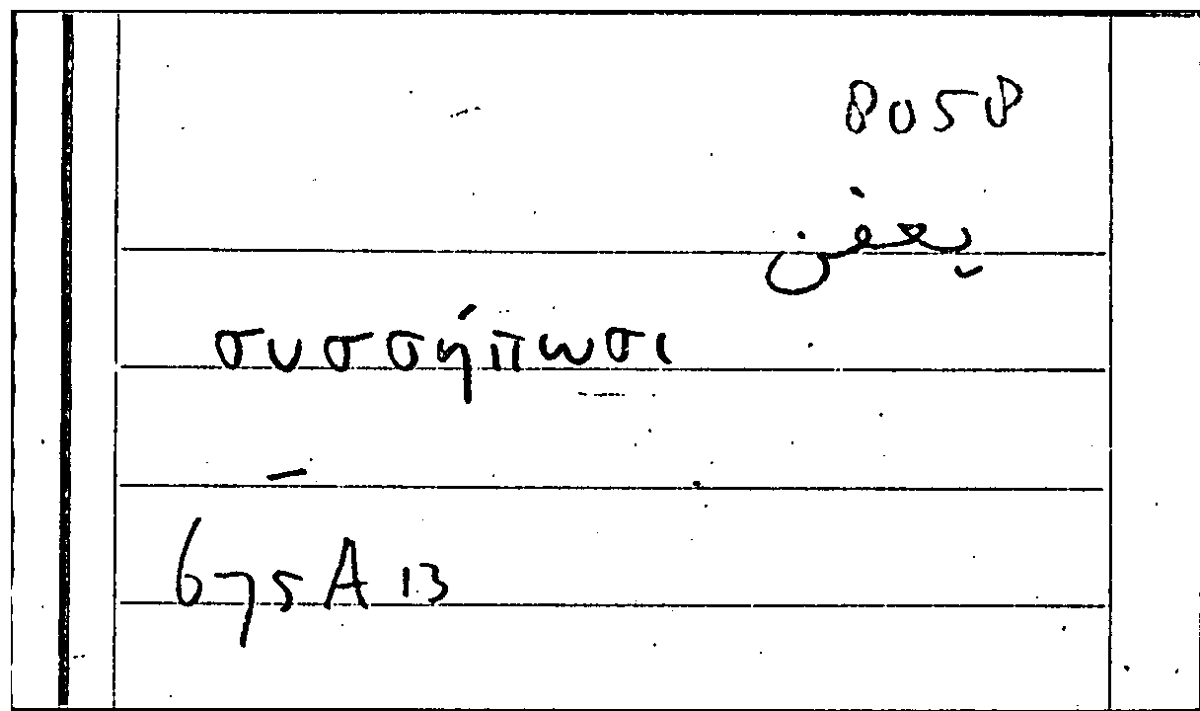 8058
يعفن
συσσήπωσι
675A13